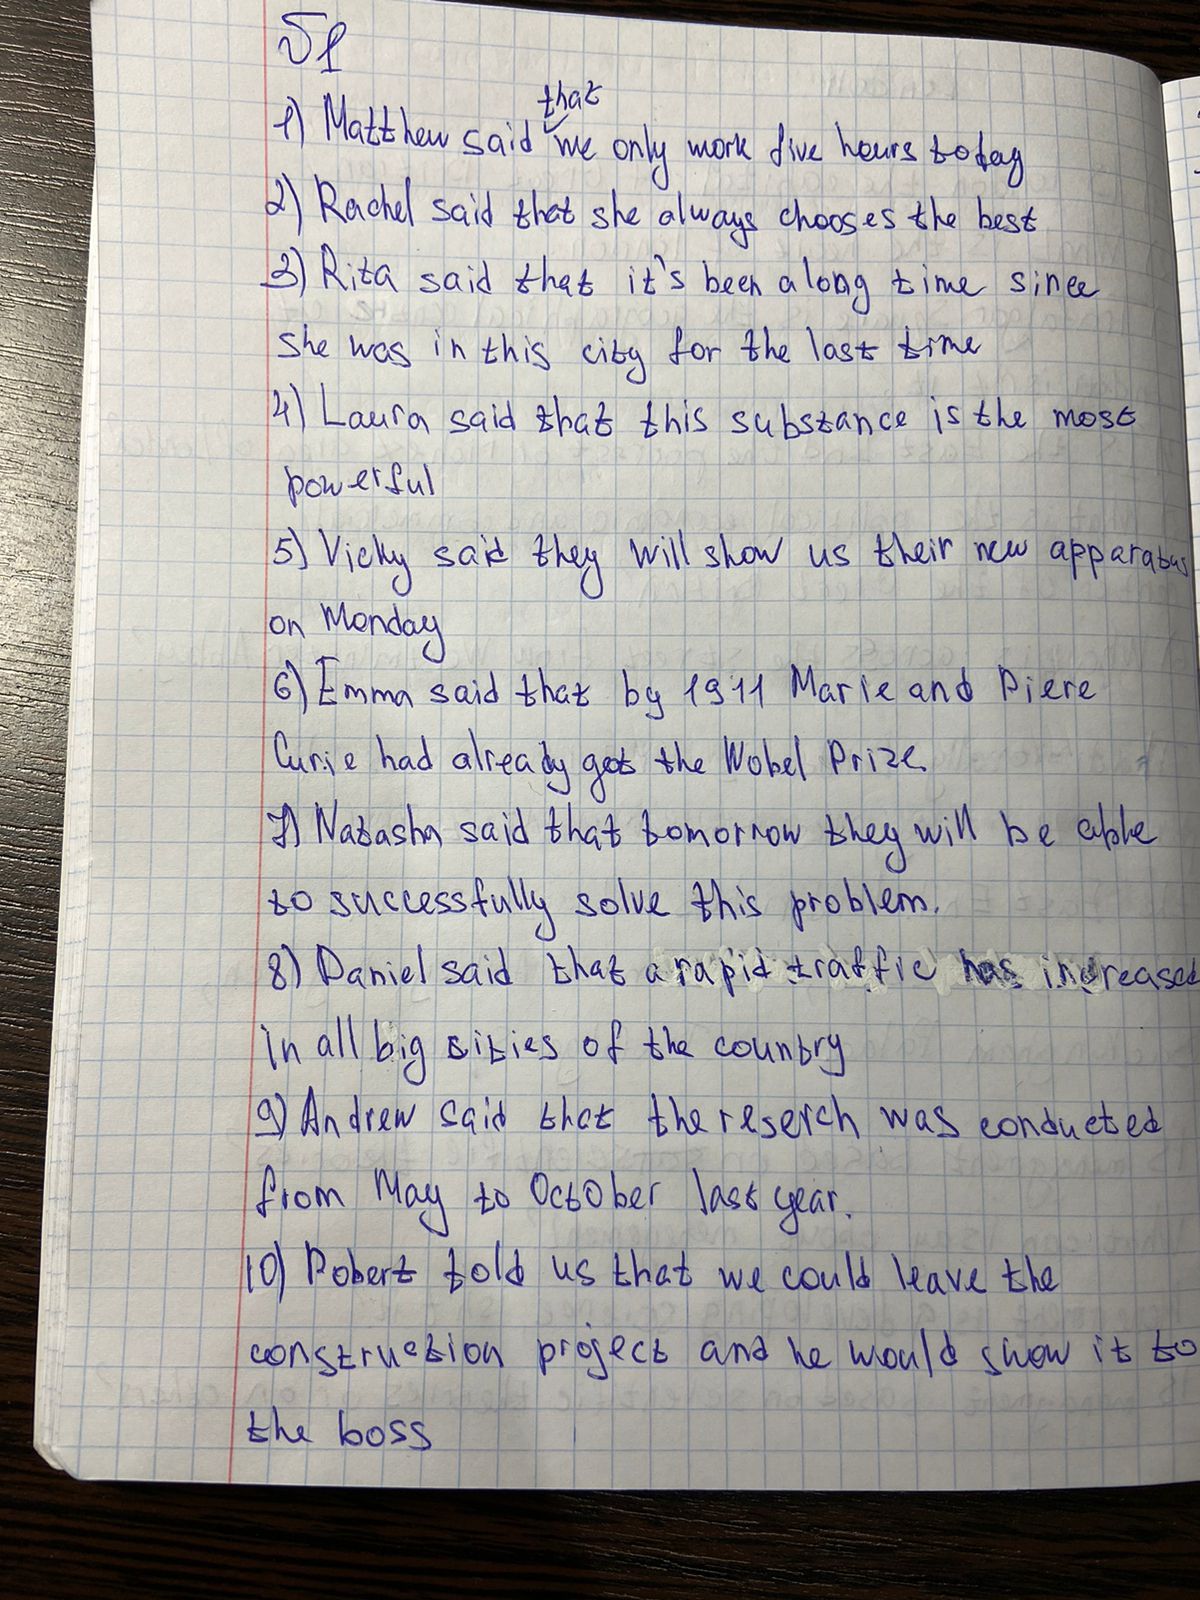 №1
that
1) Matthew said we only work five hours today
2) Rachel said that she always chooses the best
3) Rita said that it's been a long time since
she was in this city for the last time
4) Laura said that this substance is the most
powerful
5) Vicky said they will show us their new apparatus
on Monday
6) Emma said that by 1911 Marie and Piere
Curie had already got the Nobel Prize.
7) Natasha said that tomorrow they will be able
to successfully solve this problem.
8) Daniel said that a rapid traffic has increased
in all big sities of the country
9) Andrew said that the reserch was conducted
from May to October last year.
10) Robert told us that we could leave the
construction project and he would show it to
the boss